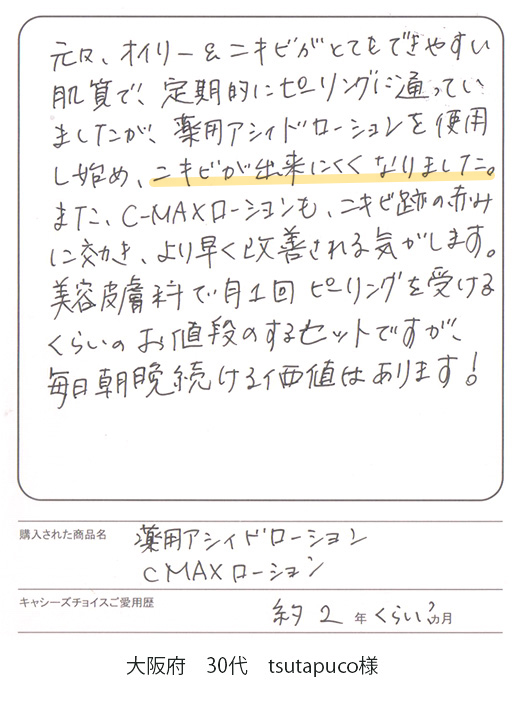 元々、オイリー&ニキビがとてもできやすい
肌質で、定期的にピーリングに通ってい
ましたが、薬用アシィドローションを使用
し始め、ニキビが出来にくくなりました。
また、C-MAXローションも、ニキビ跡の赤み
に効き、より早く改善される気がします。
美容皮膚科で月1回ピーリングを受ける
くらいのお値段のするセットですが、
毎日朝晩続ける価値はあります!
購入された商品名 薬用アシィドローション
CMAXローション
キャシーズチョイスご愛用歴 約2年くらい?カ月
大阪府 30代 tsutapuco様